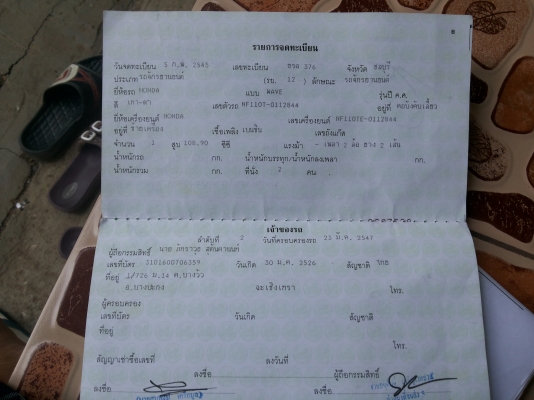 8
รายการจดทะเบียน
วันจดทะเบียน 5 ก.พ. 2545 เลขทะเบียน 376 จังหวัด ชลบุรี
ประเภท รถจักรยานยนต์ (รย. 12 ) ลักษณะ รถจักรยานยนต์
ยี่ห้อรถ HONDA แบบ WAVE รุ่นปี ค.ศ.
สี เทา-ดำ เลขตัวรถ NF110T-0112844 อยู่ที่ คอบังคับเลี้ยว
ยี่ห้อเครื่องยนต์ HONDA เลขเครื่องยนต์ NF110TE-0112844
อยู่ที่ เชื้อเพลิง เบนซิน เลขถังแก๊ส
จำนวน 1 สูบ 108.90 ซีซี แรงม้า - เพลา 2 ล้อ ยาง 2 เส้น
น้ำหนักรถ กก. น้ำหนักบรรทุก/น้ำหนักลงเพลา กก.
น้ำหนักรวม กก. ที่นั่ง 2 คน
เจ้าของรถ
ลำดับที่ 2 วันที่ครอบครองรถ 23 มี.ค. 2547
ผู้ถือกรรมสิทธิ์ นาย
เลขที่บัตร 3101600706359 วันเกิด 30 ม.ค. 2526 สัญชาติ ไทย
ที่อยู่ 1/726 ม.14 ต.บางวัว
อ.บางปะกง ฉะเชิงเทรา โทร.
ผู้ครอบครอง
เลขที่บัตร วันเกิด สัญชาติ
ที่อยู่
โทร.
สัญญาเช่าซื้อเลขที่ ลงวันที่
ลงชื่อ ผู้ถือกรรมสิทธิ์
ลงชื่อ ลงชื่อ